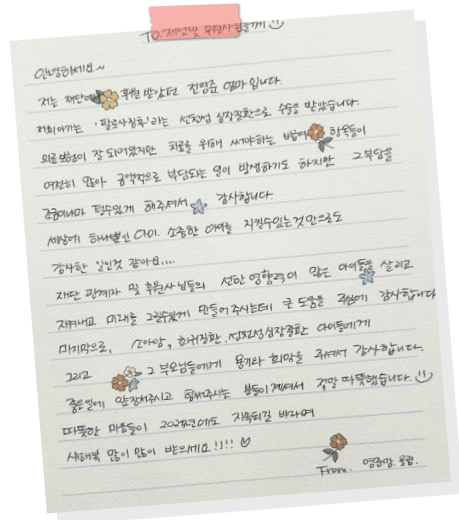 To. 재단및 후원사님들께
안녕하세요~
저는 재단에서 후원 받았던 전영준 엄마 입니다.
저희아기는 '팔로사징후'라는 선천성 심장질환으로 수술을 받았습니다.
의료보험이 잘 되어있지만 치료를 위해 써야하는 비급여 항목들이
여전히 많아 금액적으로 부담되는 일이 발생하기도 하지만 그부담을
조금이나마 덜수있게 해주셔서 감사합니다.
세상에 하나뿐인 아이. 소중한 아이를 지킬수있는것만으로도
감사한 일인것 같아요....
재단 관계자 및 후원사님들의 선한 영향력이 많은 아이들을 살리고
지켜내고 미래를 그릴수있게 만들어 주시는데 큰 도움을 주심에 감사합니다
마지막으로, 소아암, 희귀질환, 선천성심장질환 아이들에게
그리고 그 부모님들에게 용기와 희망을 주셔서 감사합니다.
좋은일에 앞장서주시고 힘써주시는 분들이계셔서 정말 따뜻했습니다.
따뜻한 마음들이 2026년에도 지속되길 바라며
새해복 많이 많이 받으세요!!!!
From. 영준맘.올림.